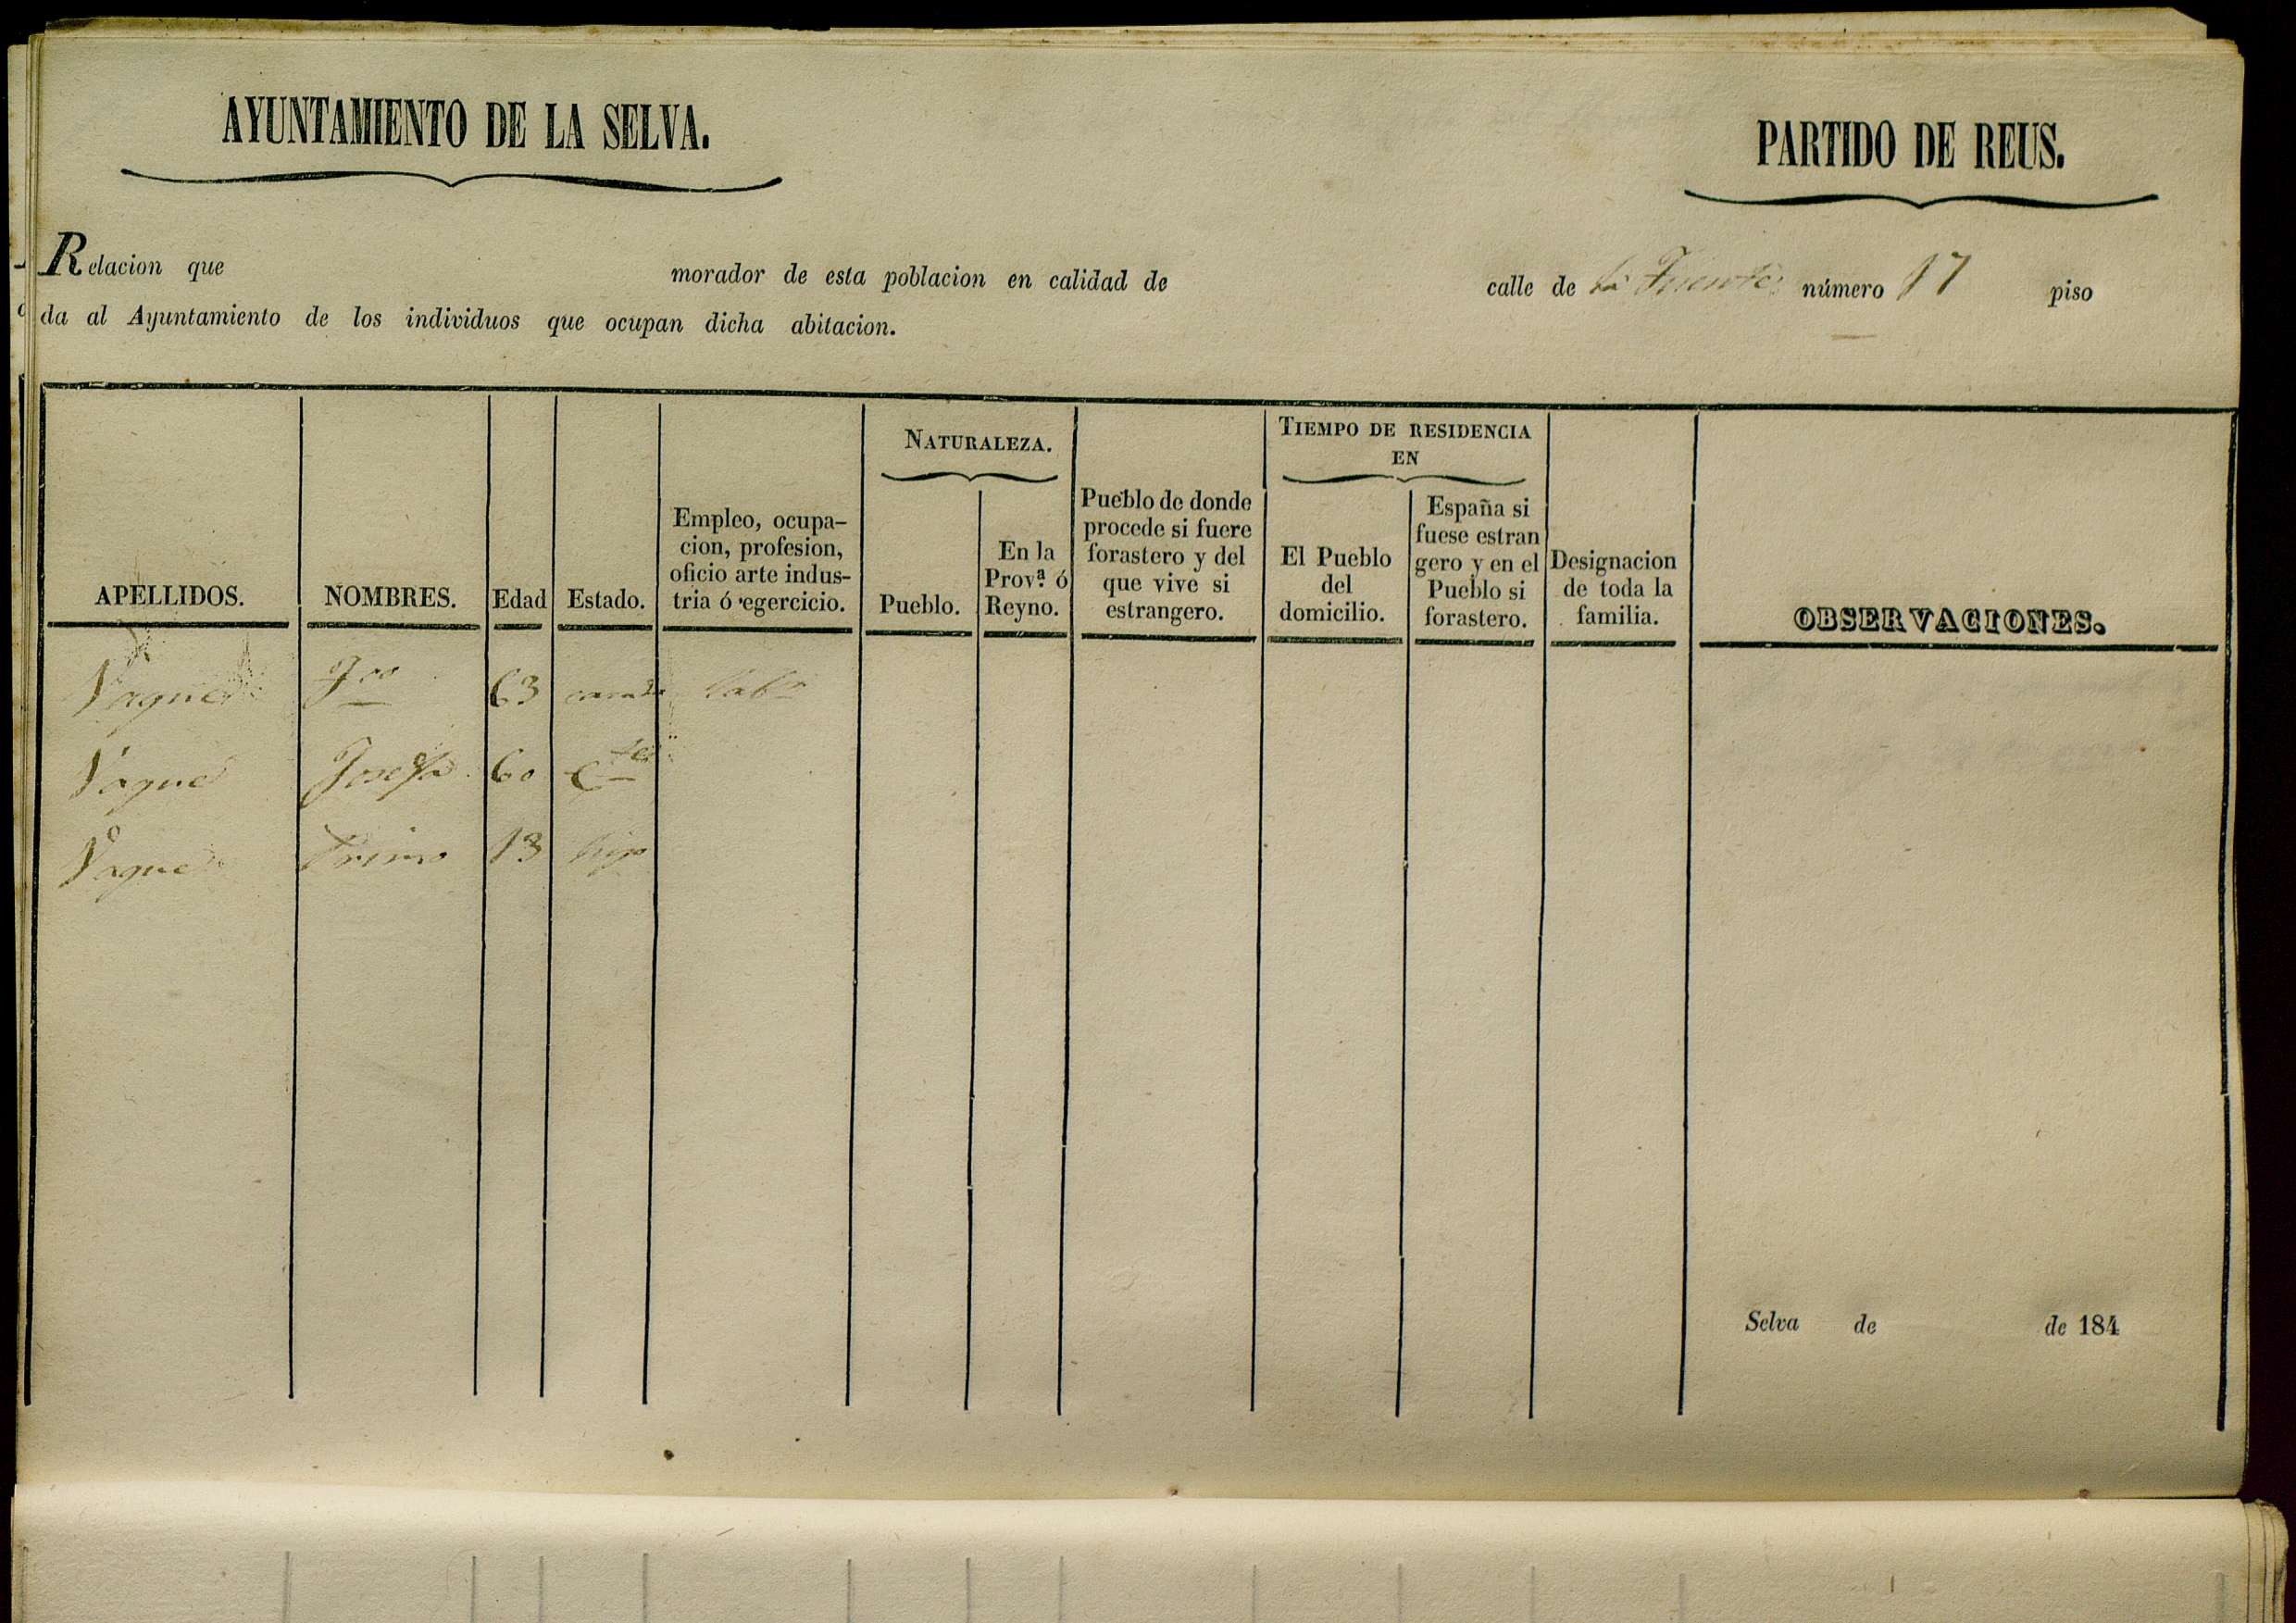 AYUNTAMIENTO DE LA SELVA.
PARTIDO DE REUS.
Relacion que morador de esta poblacion en calidad de calle de la Fuente número 17 piso
da al Ayuntamiento de los individuos que ocupan dicha abitacion.
NATURALEZA.
TIEMPO DE RESIDENCIA
EN
APELLIDOS.
NOMBRES.
Edad
Estado.
Empleo, ocupa-
cion, profesion,
oficio arte indus-
tria ó egercicio.
Pueblo.
En la
Prov.ª ó
Reyno.
Pueblo de donde
procede si fuere
forastero y del
que vive si
estrangero.
El Pueblo
del
domicilio.
España si
fuese estran
gero y en el
Pueblo si
forastero.
Designacion
de toda la
familia.
OBSERVACIONES.
Vague 63 casado Lab.r
Vague Josefa 60
Vague 13 hijo
Selva de de 184